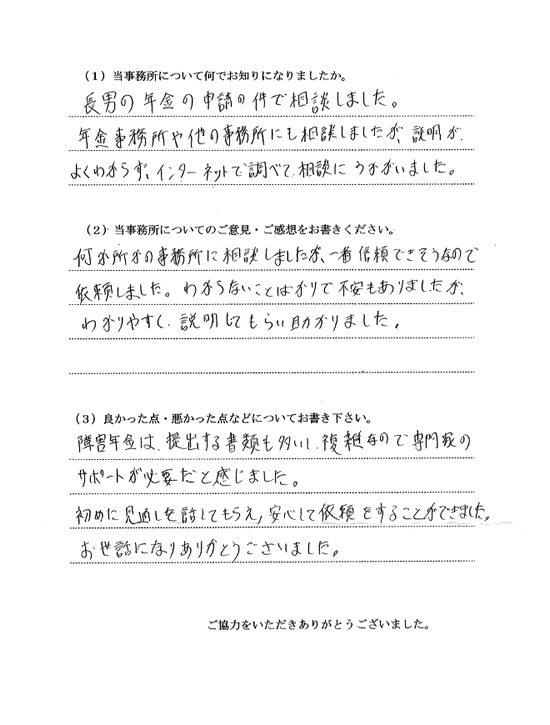 （1）当事務所について何でお知りになりましたか。
長男の年金の申請の件で相談しました。
年金事務所や他の事務所にも相談しましたが、説明が
よくわからず、インターネットで調べて相談にうかがいました。
（2）当事務所についてのご意見・ご感想をお書きください。
何か所かの事務所に相談しましたが、一番信頼できそうなので
依頼しました。わからないことばかりで不安もありましたが、
わかりやすく説明してもらい助かりました。
（3）良かった点・悪かった点などについてお書き下さい。
障害年金は、提出する書類も多いし、複雑なので専門家の
サポートが必要だと感じました。
初めに見通しを話してもらえ、安心して依頼をすることができました。
お世話になりありがとうございました。
ご協力をいただきありがとうございました。